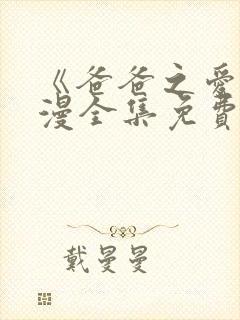 《爸爸之爱
漫全集免费
戴曼曼